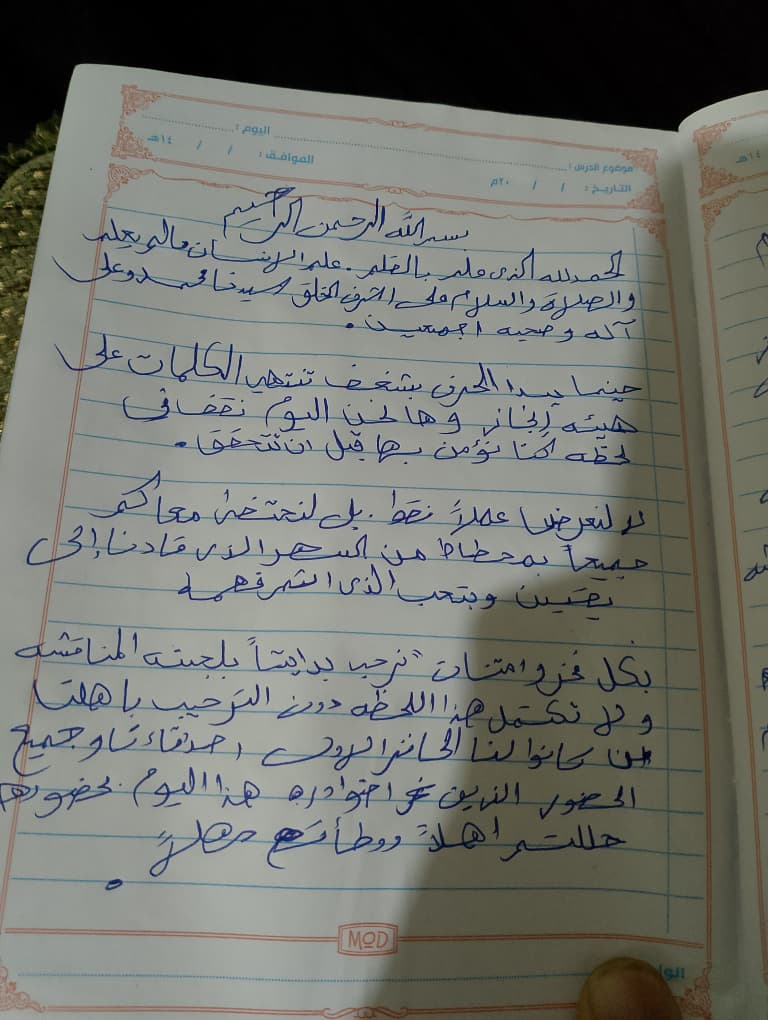 موضوع الدرس : اليوم :
التاريخ : / / ٢٠م الموافق : / / ١٤هـ
بسم الله الرحمن الرحيم
الحمد لله الذي علم بالقلم . علم الإنسان مالم يعلم
والصلاة والسلام على اشرف الخلق سيدنا محمد وعلى
آله وصحبه اجمعين .
حينما يبدا الحرف بشغف تنتهي الكلمات على
هيئه إنجاز وها نحن اليوم نقف في
لحظه كنا نؤمن بها قبل ان تتحقق .
لا لنعرض عملاً فقط . بل لنحتضن معاكم
جميعاً محطاط من السهر الذي قادنا إلى
يقين وبتعب الذي اشرفهمه
بكل فخر وامتنان نرحب بدايتاً بلجنه المناقشه
ولا تكتمل هذا اللحظه دون الترحيب باهلنا
من كانوا لنا الحافز الاول اصدقاءنا وجميع
الحضور الذين هذا اليوم بحضورهم
حللتم أهلاً ووطأتم سهلاً
.
MOD